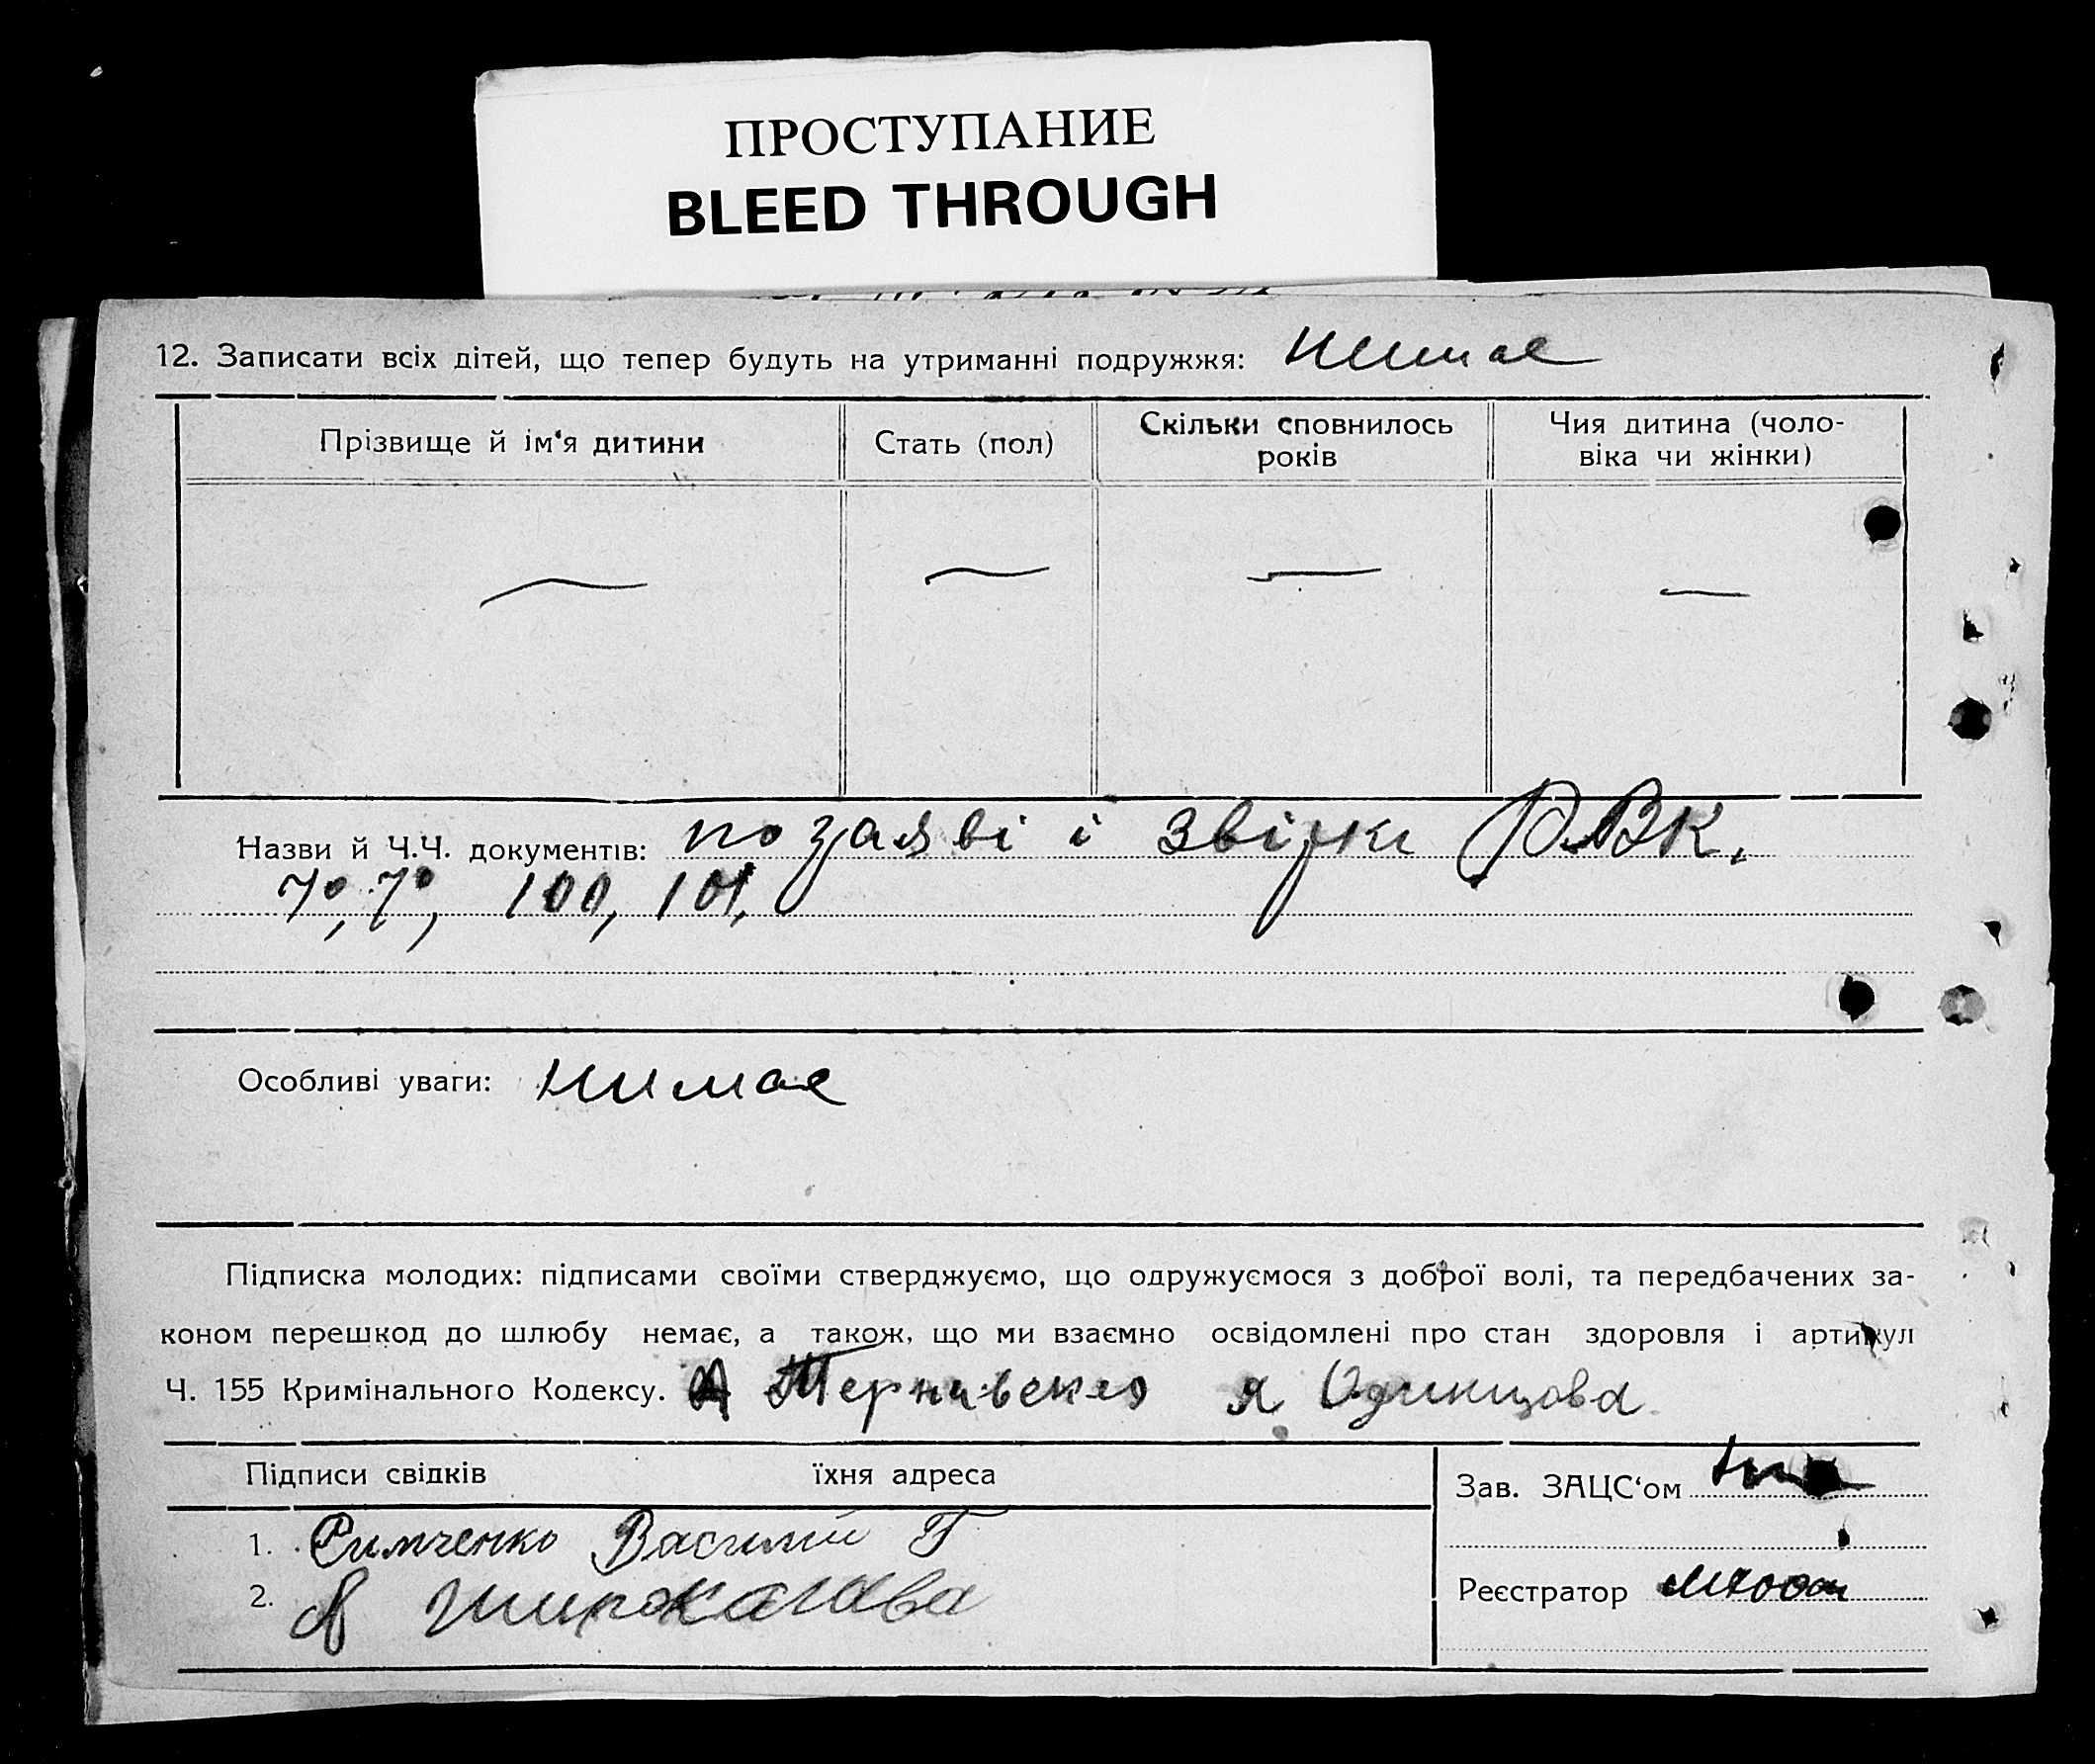 ПРОСТУПАНИЕ
BLEED THROUGH
12. Записати всіх дітей, що тепер будуть на утриманні подружжя: нимае
Прізвище й ім'я дитини
Стать (пол)
Скільки сповнилось
років
Чия дитина (чоло-
віка чи жінки)
Назви й Ч.Ч. документів: по заяві і РВК.
100, 101,
Особливі уваги: нимае
Підписка молодих: підписами своїми стверджуємо, що одружуємося з доброї волі, та передбачених за-
коном перешкод до шлюбу немає, а також, що ми взаємно освідомлені про стан здоровля і артикул
Ч. 155 Кримінального Кодексу. Я Одинцова
Підписи свідків
їхня адреса
1. Василий Г
2. Широкалава
Зав. ЗАЦС'ом
Реєстратор